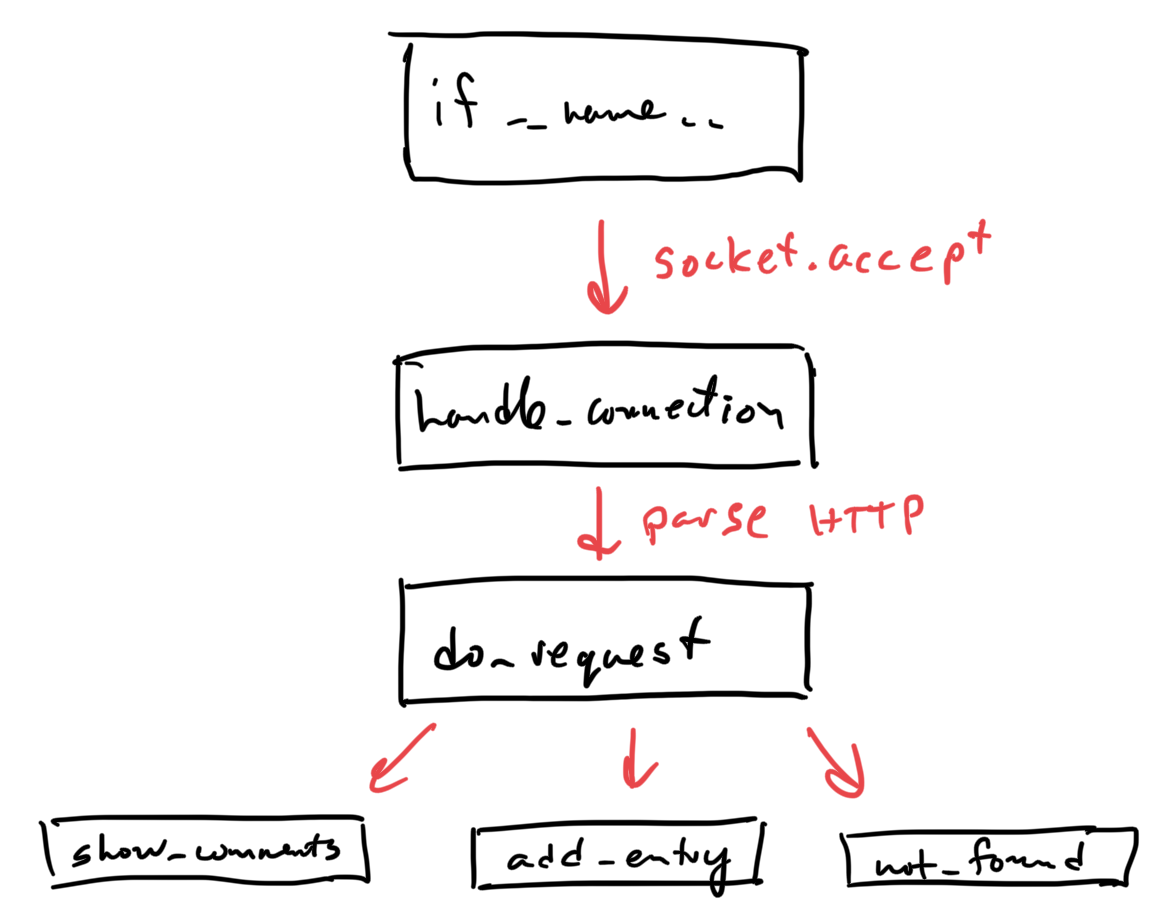 if __name__
socket.accept
handle_connection
parse HTTP
do_request
show_comments
add_entry
not_found